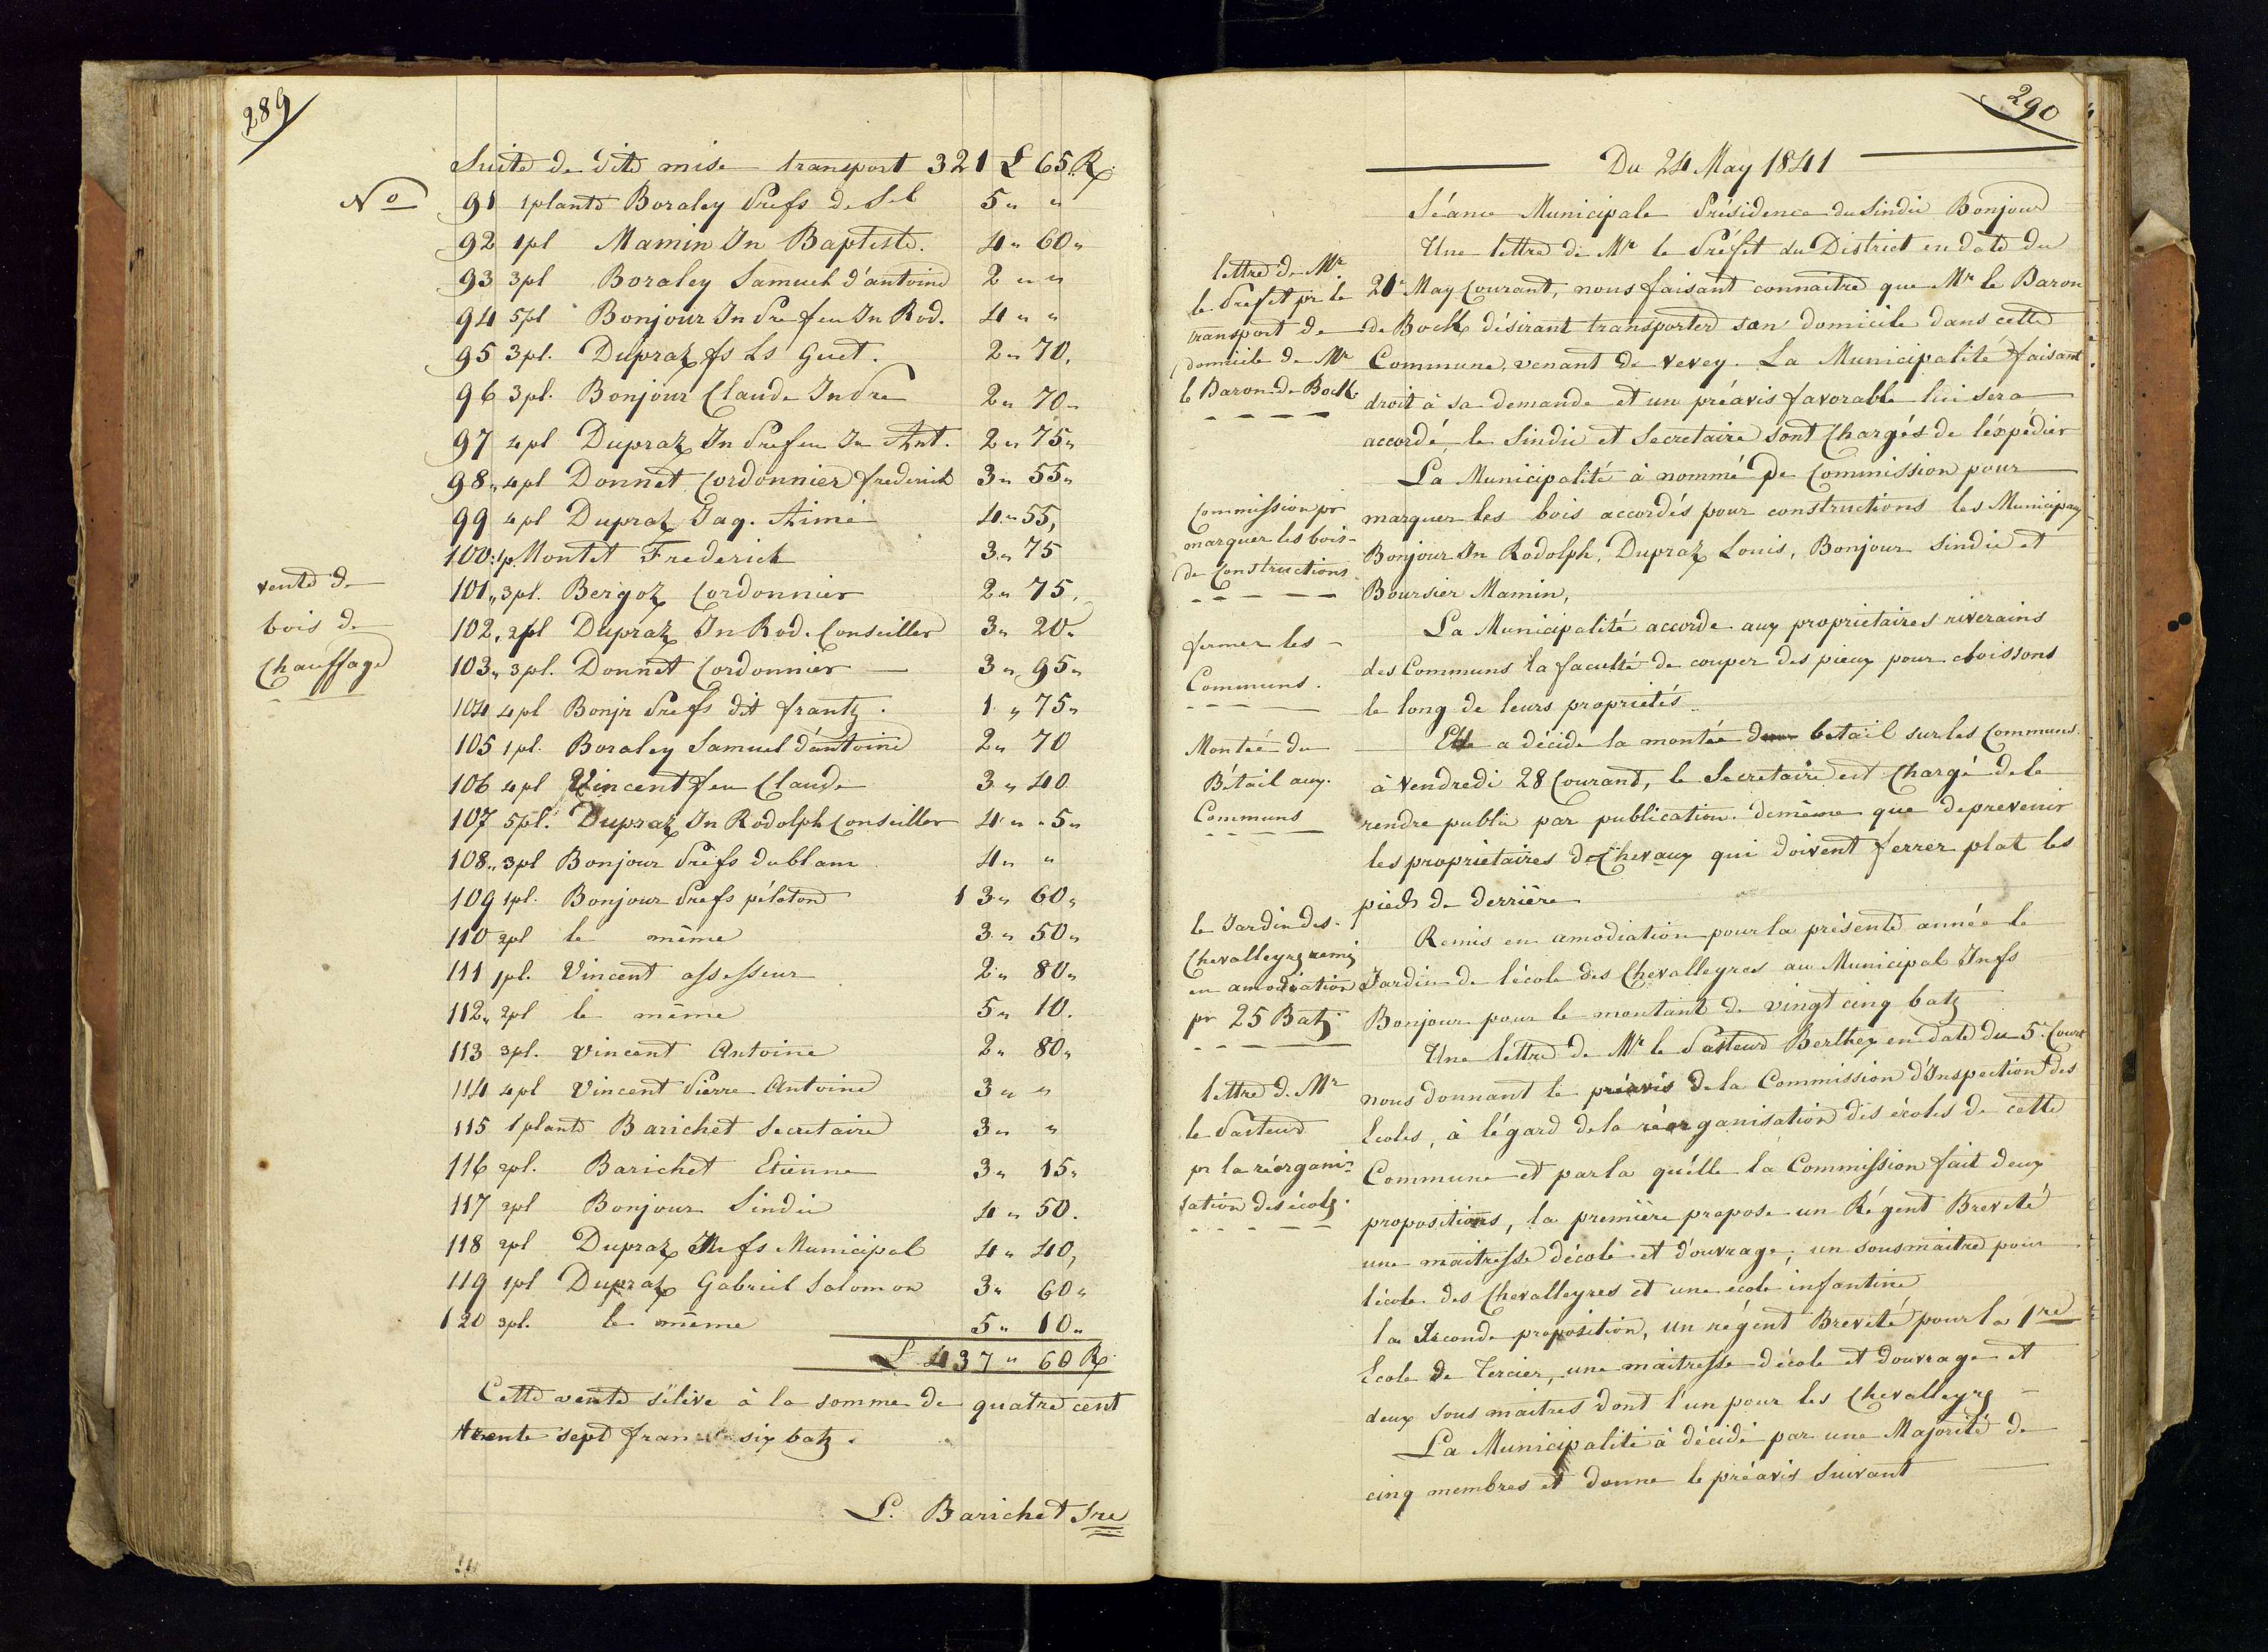 289
Suite de dite mise transport 321 L 65 Rp.
No 91 1 plante Boraley Prefs de Sel 5 " "
92 1pl Mamin Jn Baptiste. 4 " 60 "
93 3pl Boraley Samuel d'antoine 2 " "
94 5pl Bonjour Jn Pre feu Jn Rod. 4 " "
95 3pl. Dupraz fs Ls Guet. 2 " 70.
96 3pl. Bonjour Claude Jn Pre 2 " 70 "
97 4pl Dupraz Jn Pre feu Jn Ant. 2 " 75 "
98 " 4pl Donnet Cordonnier frederich 3 " 55 "
99 4pl Dupraz Jaq. Aimé 4 " 55,
100 : 1p. Montet Frederich 3 " 75
101 " 3pl. Bergoz Cordonnier 2 " 75.
102 " 2pl Dupraz Jn Rod. Conseiller 3 " 20 "
103 " 3pl. Donnet Cordonnier 3 " 95 "
104 4pl Bonjr Prefs dit frantz. 1 " 75 "
105 1pl. Boraley Samuel d'antoine 2 " 70
106 4pl Vincent feu Claude 3 " 40
107 5pl. Dupraz Jn Rodolph Conseiller 4 " " 5 "
108 " 3pl Bonjour Prefs dublanc 4 " "
109 1pl. Bonjour Prefs péloton 13 " 60 "
110 2pl le même 3 " 50 "
111 1pl. Vincent assesseur 2 " 80 "
112 " 2pl le même 5 " 10.
113 3pl. Vincent Antoine 2 " 80 "
114 4pl Vincent Pierre Antoine 3 " "
115 1 plante Barichet Secretaire 3 " "
116 2pl. Barichet Etienne 3 " 15 "
117 2pl Bonjour Sindic 4 " 50.
118 2pl Dupraz Jnfs Municipal 4 " 40,
119 1pl Dupraz Gabriel Salomon 3 " 60 "
120 3pl. le même 5 " 10 "
L 437 " 60 Rp.
vente de
bois de
Chauffage
Cette vente s'élève à la somme de quatre cent
trente sept francs six batz.
L. Barichet Sre
290
Du 24 May 1841
Séance Municipale Présidence du Sindic Bonjour
lettre de Mr
le Prefet pr le
transport de
domicile de Mr
le Baron de Bock
Une lettre de Mr le Préfet du District en date du
21e May Courant, nous faisant connaitre que Mr le Baron
de Bock désirant transporter son domicile dans cette
Commune, venant de Vevey. La Municipalité faisant
droit à sa demande et un préavis favorable lui sera
accordé le Sindic et Secretaire sont Chargés de l'éxpédier
Commission pr
marquer les bois
de Constructions
La Municipalité à nommé pr Commission pour
marquer les bois accordés pour constructions les Municipaux
Bonjour Jn Rodolph, Dupraz Louis, Bonjour Sindic et
Boursier Mamin,
fermer les
Communs.
La Municipalité accorde aux proprietaires riverains
des Communs la faculté de couper des pieux pour cloissons
le long de leurs propriétés.
Montée du
Bétail aux
Communs
Elle a décidé la montée du betail sur les Communs
à Vendredi 28 Courant, le Secretaire est Chargé de le
rendre public par publication. demême que deprevenir
les proprietaires de Chevaux qui doivent ferrer plat les
pieds de derrière
le Jardin des
Chevalleyres remis
en amodiation
pr 25 Batz
Remis en amodiation pour la présente année le
Jardin de l'école des Chevalleyres au Municipal Jnfs
Bonjour pour le montant de vingt cinq batz
lettre de Mr
le Pasteur
pr la réorgani-
sation des écoles.
Une lettre de Mr le Pasteur Berthex en date du 5e Court
nous donnant le préavis de la Commission d'Inspection des
Ecoles, à l'égard de la réorganisation des écoles de cette
Commune et par la qu'elle la Commission fait deux
propositions, la première propose un Régent Breveté
une maitresse d'école et d'ouvrage, un sousmaitre pour
l'école des Chevalleyres et une école infantine
la Seconde proposition, un régent Breveté pour la 1re
Ecole de Tercier, une maitresse d'école et d'ouvrage et
deux sous maitres dont l'un pour les Chevalleyres
La Municipalité à décidé par une Majorité de
cinq membres et donne le préavis suivant